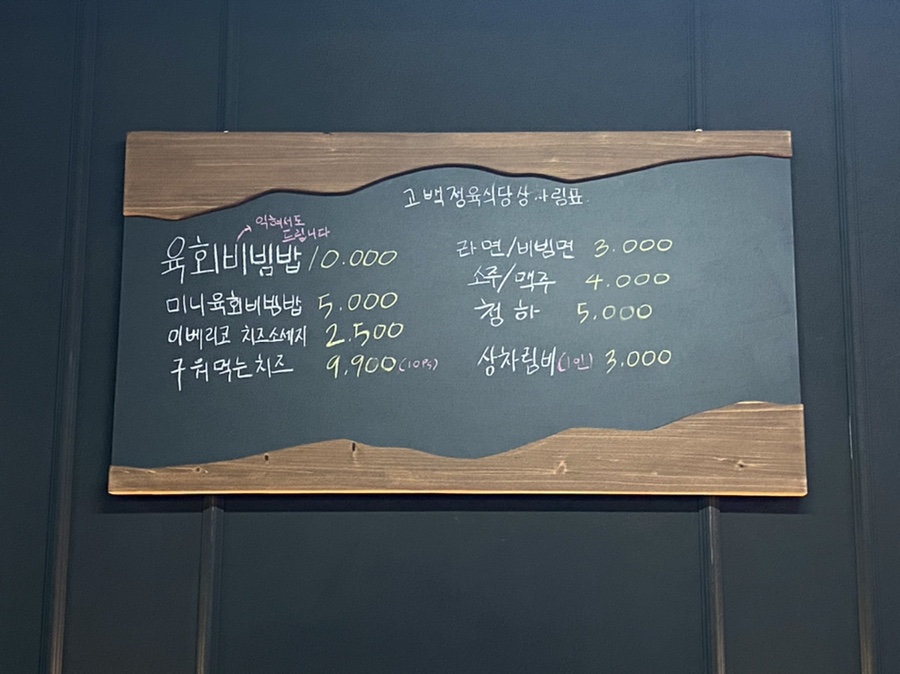 고백정육식당 상차림표
익혀서도
드립니다
육회비빔밥 10.000
미니육회비빔밥 5.000
이베리코 치즈소세지 2.500
구워먹는치즈 9.900 (10Ps)
라면/비빔면 3.000
소주/맥주 4.000
청하 5.000
상차림비(1인) 3.000